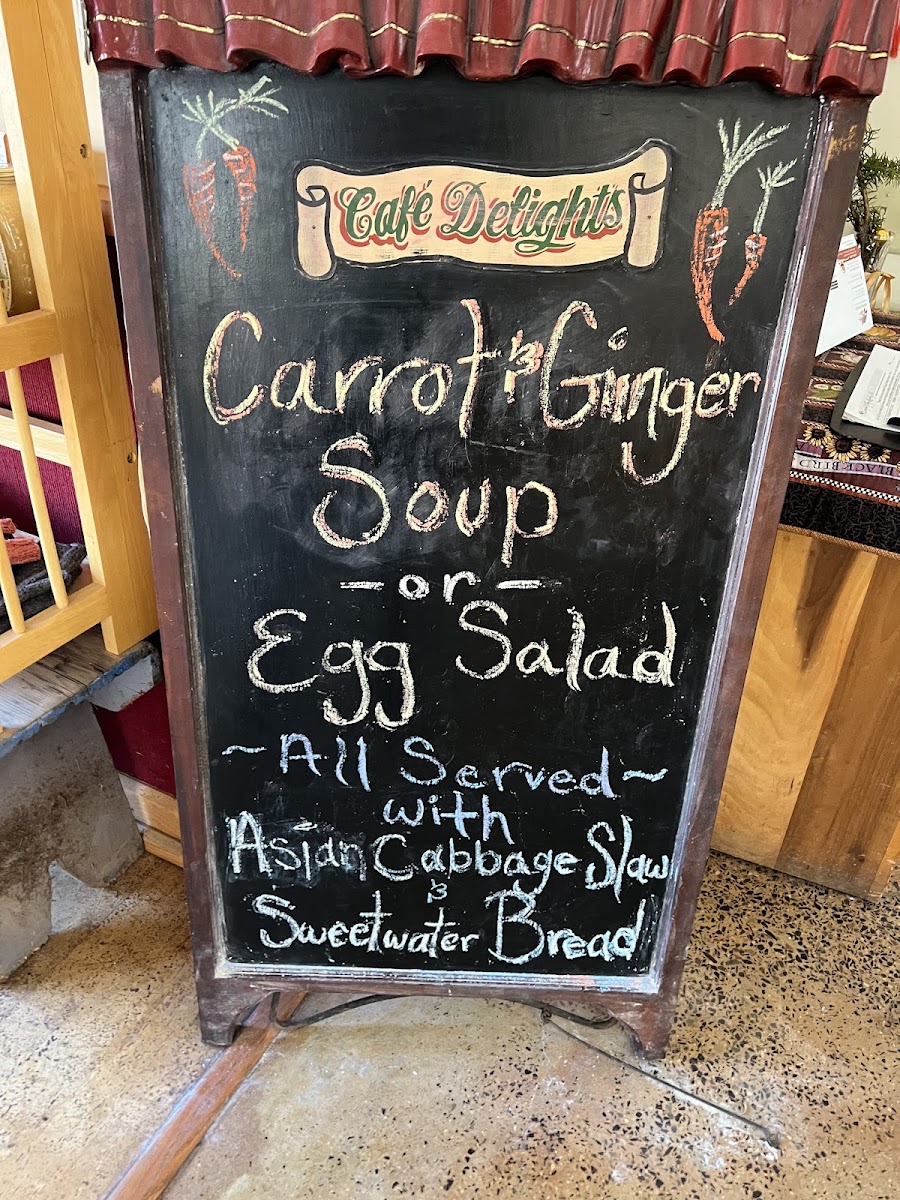 Café Delights
Carrot & Ginger
Soup
- or -
Egg Salad
~ All Served ~
with
Asian Cabbage Slaw
&
Sweetwater Bread
BLACKBIRD